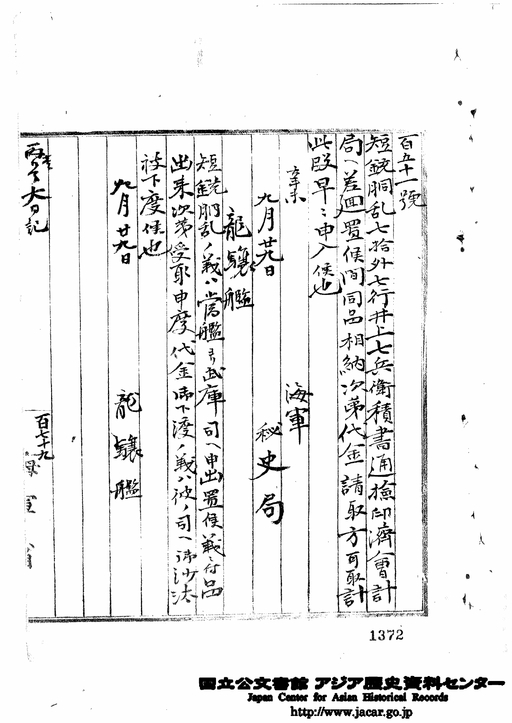 百五十一號
短銃胴乱七拾外七行井上七兵衛積書通檢印濟會計
局ヘ差廻置候間同品相納次第代金請取方可取計
此段早々申入候也
辛未
九月廿九日
海軍
秘史局
龍驤艦
短銃胴乱ノ義ハ當艦ヨリ武庫司ヘ申出置候義ニ付品
出来次第受取申度代金御下渡ノ義ハ彼ノ司ヘ御沙汰
被下度候也
九月廿九日
龍驤艦
大日記
百七十九
1372
国立公文書館 アジア歴史資料センター
Japan Center for Asian Historical Records
http://www.jacar.go.jp